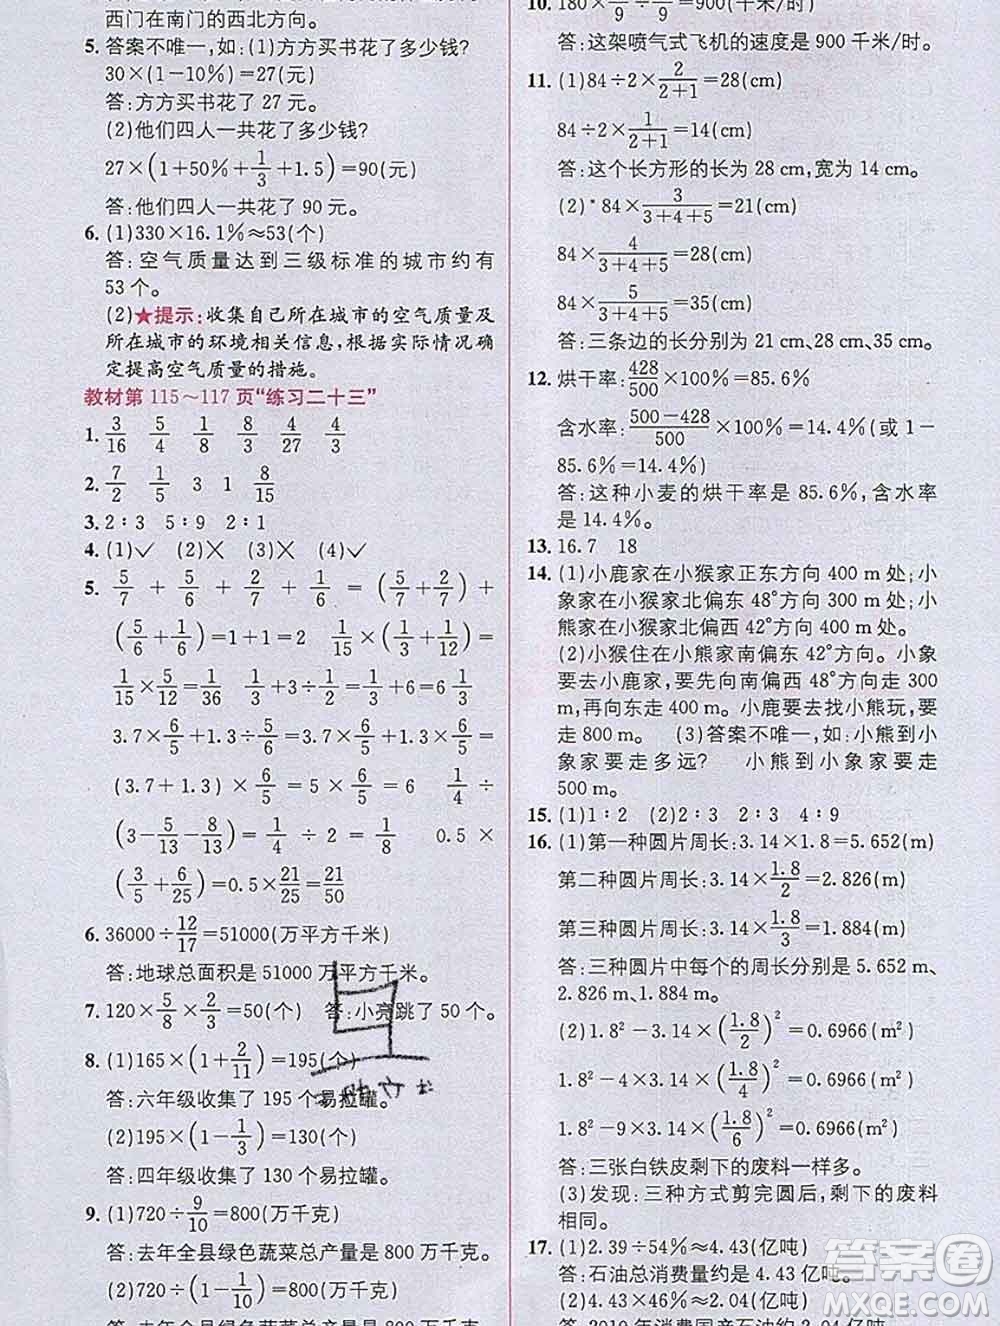 西门在南门的西北方向。
5. 答案不唯一,如:(1)方方买书花了多少钱?
30×(1-10%)=27(元)
答:方方买书花了 27 元。
(2)他们四人一共花了多少钱?
27×(1+50%+1/3+1.5)=90(元)
答:他们四人一共花了 90 元。
6. (1)330×16.1%≈53(个)
答:空气质量达到三级标准的城市约有
53 个。
(2)★提示:收集自己所在城市的空气质量及
所在城市的环境相关信息,根据实际情况确
定提高空气质量的措施。
教材第 115~117 页“练习二十三”
1. 3/16 5/4 1/8 8/3 4/27 4/3
2. 7/2 1/5 3 1 8/15
3. 2∶3 5∶9 2∶1
4. (1)✓ (2)✕ (3)✕ (4)✓
5. 5/7 + 5/6 + 2/7 + 1/6 = (5/7 + 2/7) +
(5/6+1/6)=1+1=2 1/15×(1/6+1/4)=
1/15×5/12=1/36 1/3+3÷1/2=1/3+6=6 1/3
3.7×6/5+1.3÷5/6=3.7×6/5+1.3×6/5=
(3.7+1.3)×6/5=5×6/5=6 1/4÷
(3-5/13-8/13)=1/4÷2=1/8 0.5×
(3/5+6/25)=0.5×21/25=21/50
6. 36000÷12/17=51000(万平方千米)
答:地球总面积是 51000 万平方千米。
7. 120×5/8×2/3=50(个) 答:小亮跳了 50 个。
8. (1)165×(1+2/11)=195(个)
答:六年级收集了 195 个易拉罐。
(2)195×(1-1/3)=130(个)
答:四年级收集了 130 个易拉罐。
9. (1)720÷9/10=800(万千克)
答:去年全县绿色蔬菜总产量是 800 万千克。
(2)720÷(1-1/10)=800(万千克)
答:去年全县绿色蔬菜总产量是 800 万千克。
10. 180×/9÷/9=900(千米/时)
答:这架喷气式飞机的速度是 900 千米/时。
11. (1)84÷2×2/(2+1)=28(cm)
84÷2×1/(2+1)=14(cm)
答:这个长方形的长为 28 cm,宽为 14 cm。
(2)84×3/(3+4+5)=21(cm)
84×4/(3+4+5)=28(cm)
84×5/(3+4+5)=35(cm)
答:三条边的长分别为 21 cm、28 cm、35 cm。
12. 烘干率:428/500×100%=85.6%
含水率:(500-428)/500×100%=14.4%(或 1-
85.6%=14.4%)
答:这种小麦的烘干率是 85.6%,含水率
是 14.4%。
13. 16.7 18
14. (1)小鹿家在小猴家正东方向 400 m 处;小
象家在小猴家北偏东 48°方向 300 m 处;小
熊家在小猴家北偏西 42°方向 400 m 处。
(2)小猴住在小熊家南偏东 42°方向。小象
要去小鹿家,要先向南偏西 48°方向走 300
m,再向东走 400 m。小鹿要去找小熊玩,要
走 800 m。 (3)答案不唯一,如:小熊到小
象家要走多远? 小熊到小象家要走
500 m。
15. (1)1∶2 (2)2∶3 2∶3 4∶9
16. (1)第一种圆片周长:3.14×1.8=5.652(m)
第二种圆片周长:3.14×1.8/2=2.826(m)
第三种圆片周长:3.14×1.8/3=1.884(m)
答:三种圆片中每个的周长分别是 5.652 m、
2.826 m、1.884 m。
(2)1.8²-3.14×(1.8/2)²=0.6966(m²)
1.8²-4×3.14×(1.8/4)²=0.6966(m²)
1.8²-9×3.14×(1.8/6)²=0.6966(m²)
答:三张白铁皮剩下的废料一样多。
(3)发现:三种方式剪完圆后,剩下的废料
相同。
17. (1)2.39÷54%≈4.43(亿吨)
答:石油总消费量约是 4.43 亿吨。
(2)4.43×46%≈2.04(亿吨)
答案圈
MXQE.COM